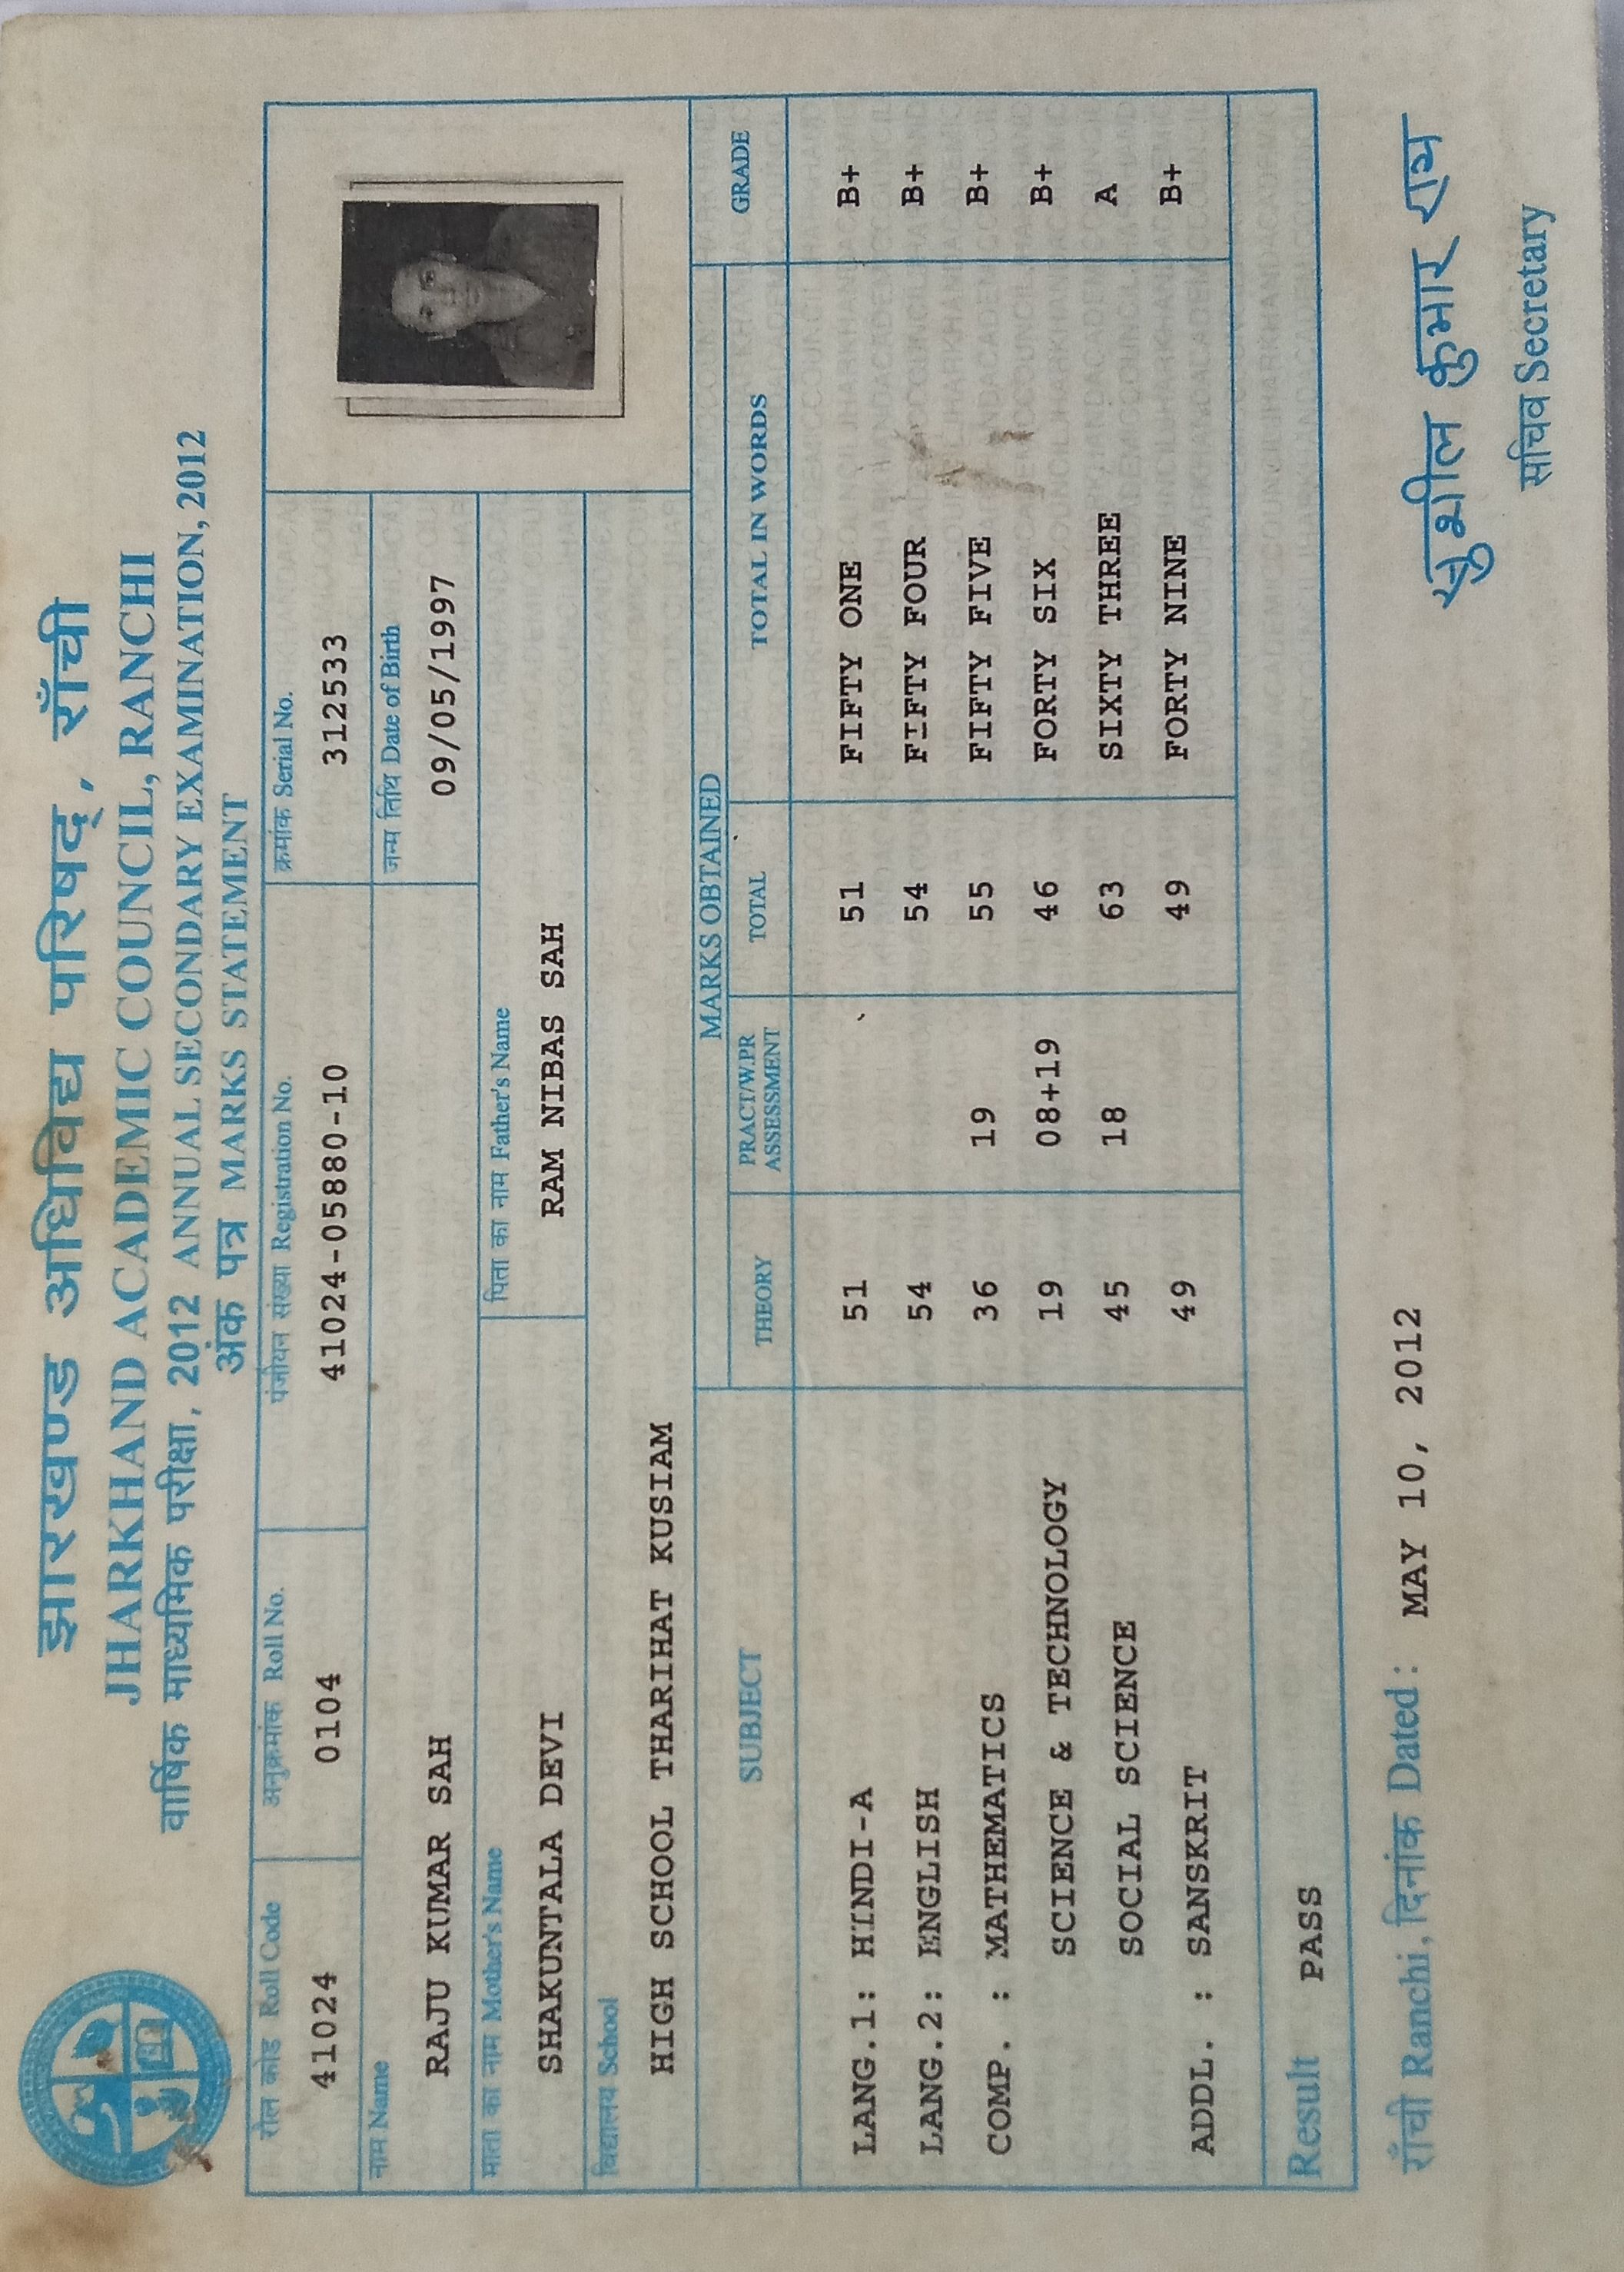 झारखण्ड अधिविद्य परिषद्, राँची
JHARKHAND ACADEMIC COUNCIL, RANCHI
वार्षिक माध्यमिक परीक्षा, 2012 ANNUAL SECONDARY EXAMINATION, 2012
अंक पत्र MARKS STATEMENT
रोल कोड Roll Code अनुक्रमांक Roll No. पंजीयन संख्या Registration No. क्रमांक Serial No.
41024 0104 41024-05880-10 312533
नाम Name जन्म तिथि Date of Birth
RAJU KUMAR SAH 09/05/1997
माता का नाम Mother's Name पिता का नाम Father's Name
SHAKUNTALA DEVI RAM NIBAS SAH
विद्यालय School
HIGH SCHOOL THARIHAT KUSIAM
SUBJECT MARKS OBTAINED GRADE
THEORY PRACT/W.PR ASSESSMENT TOTAL TOTAL IN WORDS
LANG.1: HINDI-A 51 51 FIFTY ONE B+
LANG.2: ENGLISH 54 54 FIFTY FOUR B+
COMP. : MATHEMATICS 36 19 55 FIFTY FIVE B+
SCIENCE & TECHNOLOGY 19 08+19 46 FORTY SIX B+
SOCIAL SCIENCE 45 18 63 SIXTY THREE A
ADDL. : SANSKRIT 49 49 FORTY NINE B+
Result PASS
राँची Ranchi, दिनांक Dated : MAY 10, 2012
सुशील कुमार राय
सचिव Secretary